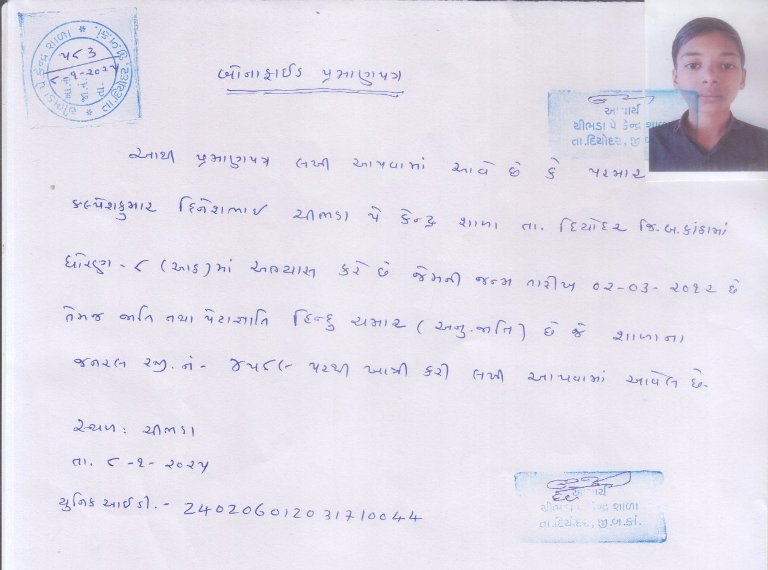 ચીભડા પે કેન્દ્ર શાળા
૫૮૩
જા.નં.
તા.
બોનાફાઈડ પ્રમાણપત્ર
આચાર્ય
ચીભડા પે કેન્દ્ર શાળા
તા.દિયોદર, જી.બ
આથી પ્રમાણપત્ર લખી આપવામાં આવે છે કે પરમાર
કલ્પેશકુમાર દિનેશભાઈ ચીભડા પે કેન્દ્ર શાળા તા. દિયોદર જિ.બ.કાંઠામાં
ધોરણ - ૮ (આઠ)માં અભ્યાસ કરે છે જેમની જન્મ તારીખ ૦૨-૦૩-૨૦૧૨ છે
તેમજ જાતિ તથા પેટાજ્ઞાતિ હિન્દુ ચમાર (અનુ.જાતિ) છે જે શાળાના
જનરલ રજી.નં - ૪૫૮૯ પરથી ખાત્રી કરી લખી આપવામાં આવેલ છે.
સ્થળ : ચીભડા
તા. ૮ -૧- ૨૦૨૫
યુનિક આઈડી. - 240206012031710044
આચાર્ય
ચીભડા પે કેન્દ્ર શાળા
તા.દિયોદર, જી.બ.કાં.